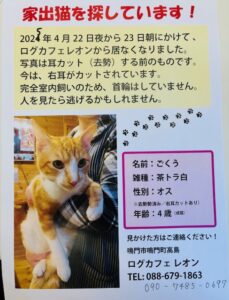 家出猫を探しています！
2025年4月22日夜から23日朝にかけて、
ログカフェレオンから居なくなりました。
写真は耳カット（去勢）する前のものです。
今は、右耳がカットされています。
完全室内飼いのため、首輪はしていません。
人を見たら逃げるかもしれません。
名前：ごくう
雑種：茶トラ白
性別：オス
※去勢済み／右耳カットあり）
年齢：4歳（成猫）
見かけた方はご連絡ください！
鳴門市鳴門町高島
ログカフェ レオン
TEL:088-679-1863
090-7485-0697